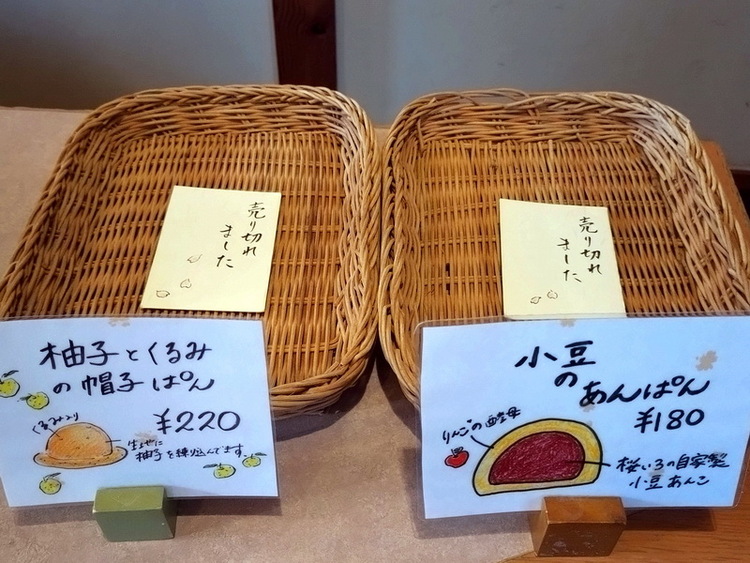 売り切れ
ました
売り切れ
ました
柚子とくるみ
の帽子ぱん
¥220
くるみ入り
生地に
柚子を練り込んでます。
小豆
の
あんぱん
¥180
りんごの酵母
桜いろの自家製
小豆あんこ